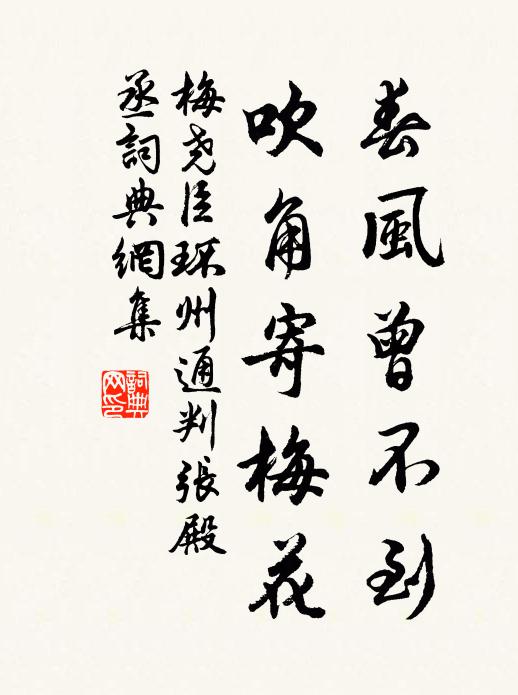 春風曾不到
吹角寄梅花
梅堯臣環州通判張殿
丞詞典網集
詞典
网印